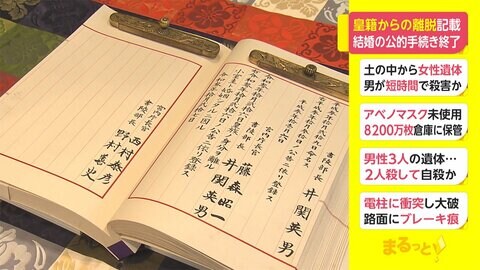 皇籍からの離脱記載
結婚の公的手続き終了
土の中から女性遺体
男が短時間で殺害か
アベノマスク未使用
8200万枚倉庫に保管
男性3人の遺体…
2人殺して自殺か
電柱に衝突し大破
路面にブレーキ痕
まるっと!
書陵部長 井関英男
公告ニ依リ登録ス
宮内庁長官 藤森昭一
書陵部長 井関英男
公告ニ依リ登録ス
宮内庁長官 西村泰彦
書陵部長 野村善史